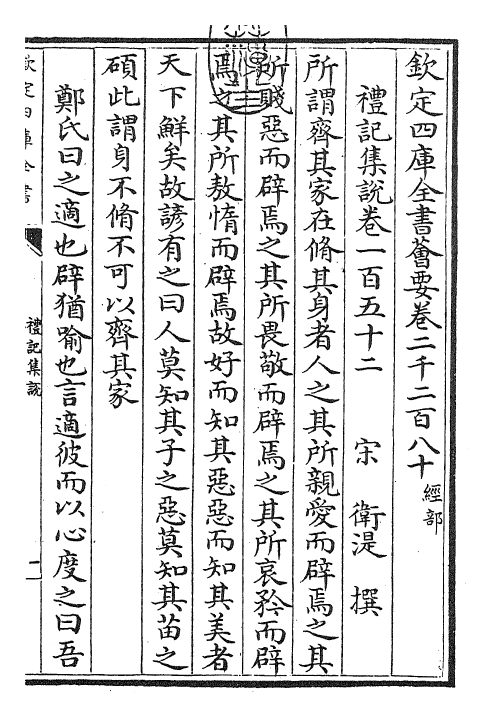 欽定四庫全書薈要卷二千二百八十 經部
禮記集說卷一百五十二 宋 衛湜 撰
所謂齊其家在脩其身者人之其所親愛而辟焉之其
所賤惡而辟焉之其所畏敬而辟焉之其所哀矜而辟
焉之其所敖惰而辟焉故好而知其惡惡而知其美者
天下鮮矣故諺有之曰人莫知其子之惡莫知其苗之
碩此謂身不脩不可以齊其家
鄭氏曰之適也辟猶喻也言適彼而以心度之曰吾
欽定四庫全書
禮記集説